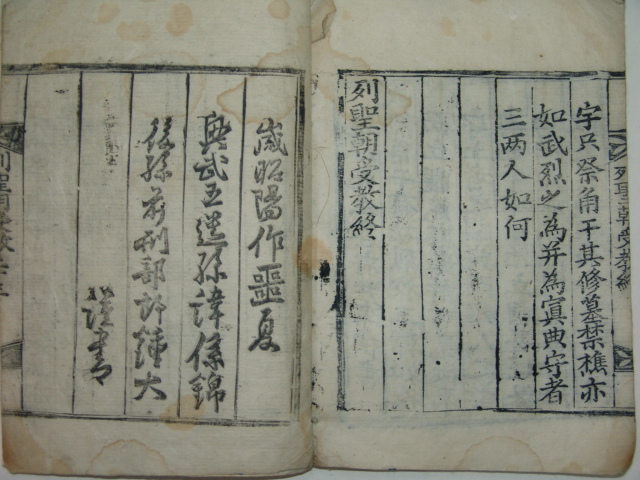 字只祭角干其修墓禁樵亦
如武烈之為并為寘典守者
三两人如何
列聖朝受教終
列聖朝受教終
歲昭陽作噩夏
興武王遠孫諱係錦
後孫前刑部郎鍾大
謹書